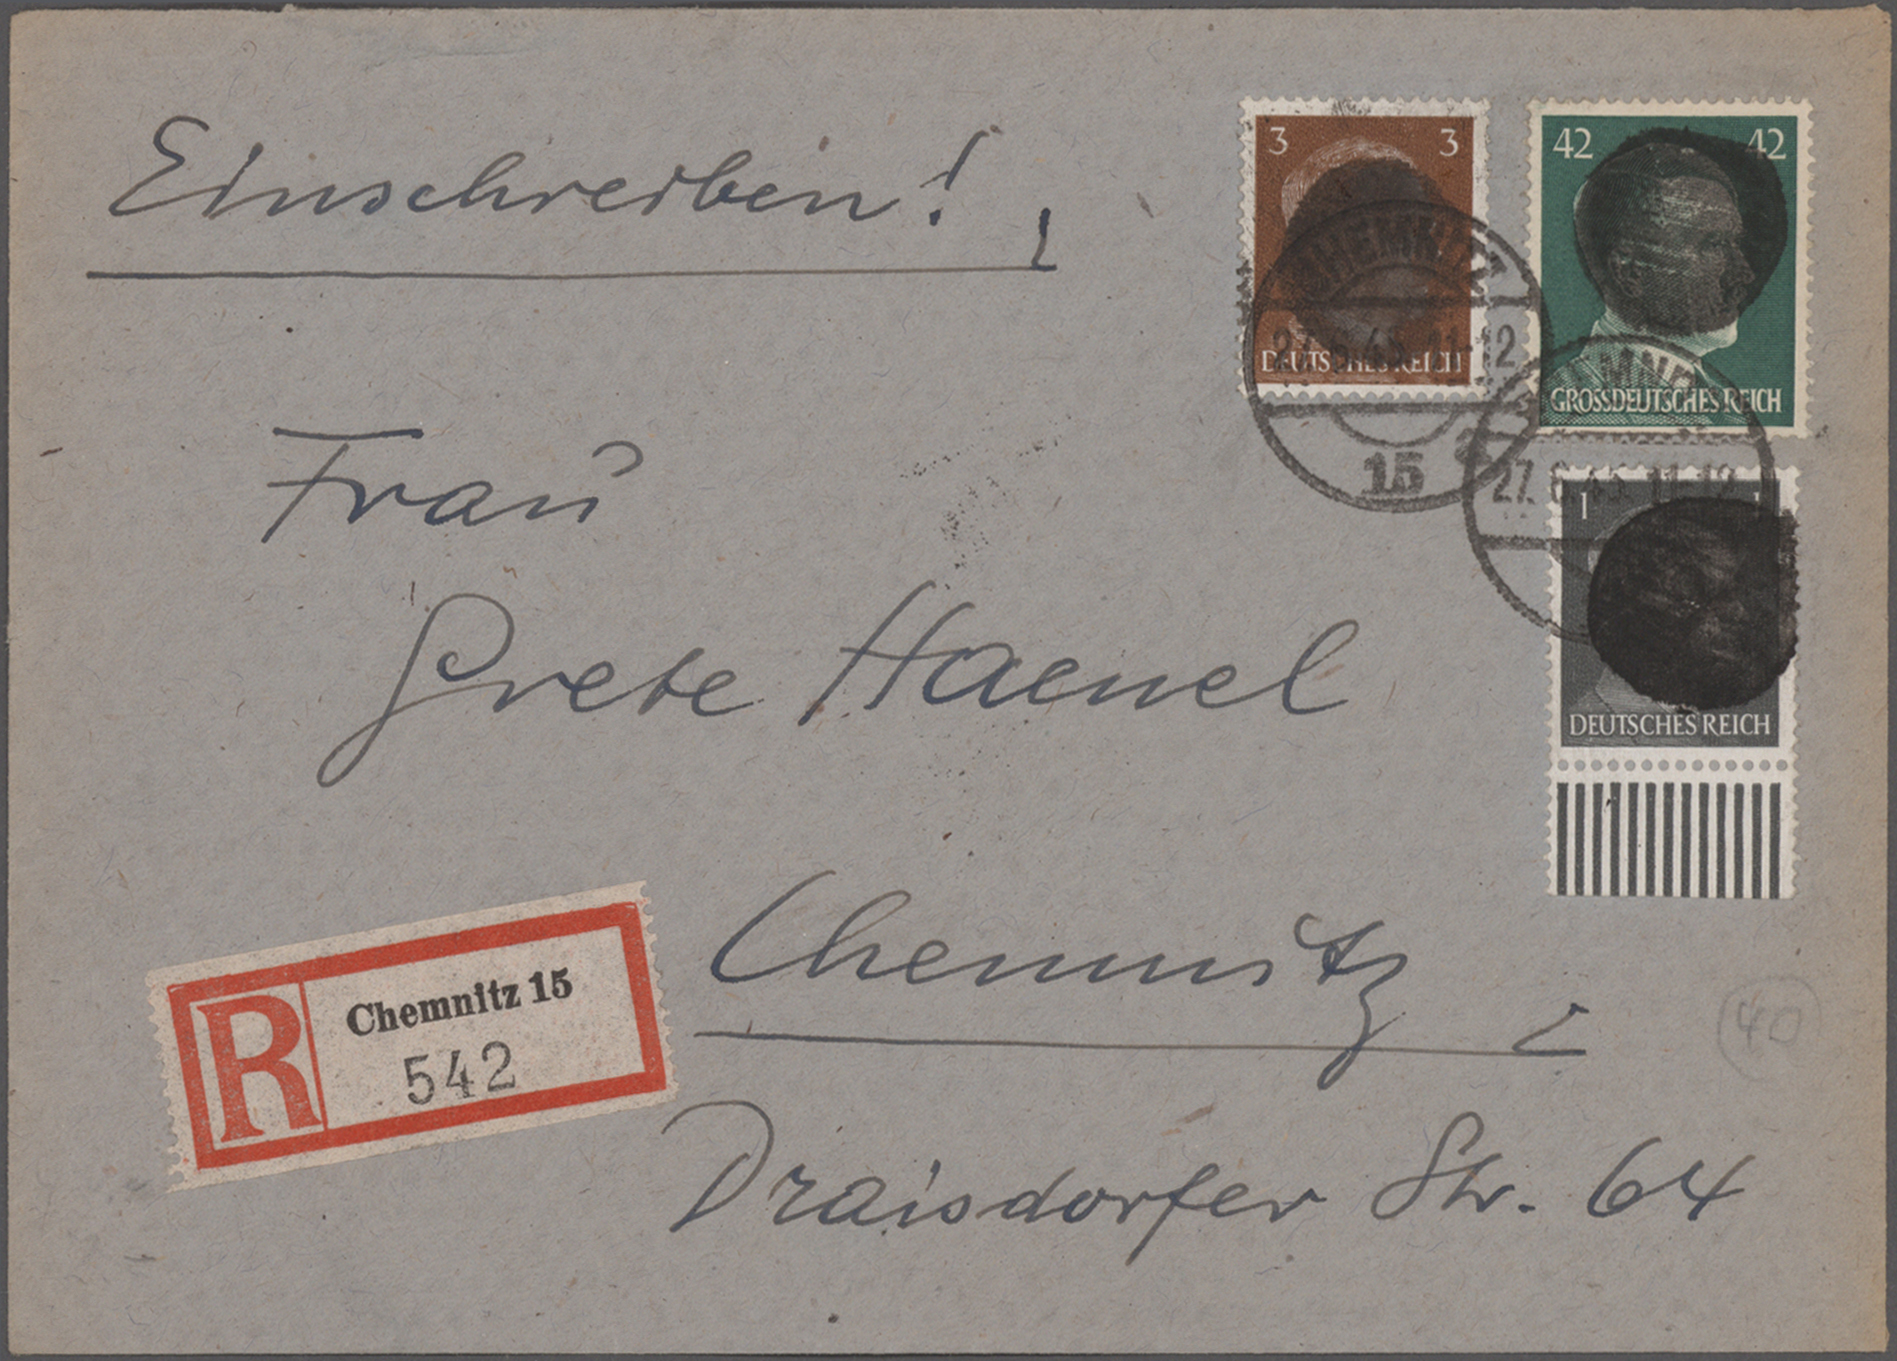 Einschreiben!
3 3
42 42
CHEMNITZ
27.6.45.11-12
DEUTSCHES REICH
GROSSDEUTSCHES REICH
15
27.6.45.11-12
1 1
DEUTSCHES REICH
Frau
Grete Haenel
Chemnitz
R
Chemnitz 15
542
40
Draisdorfer Str. 64